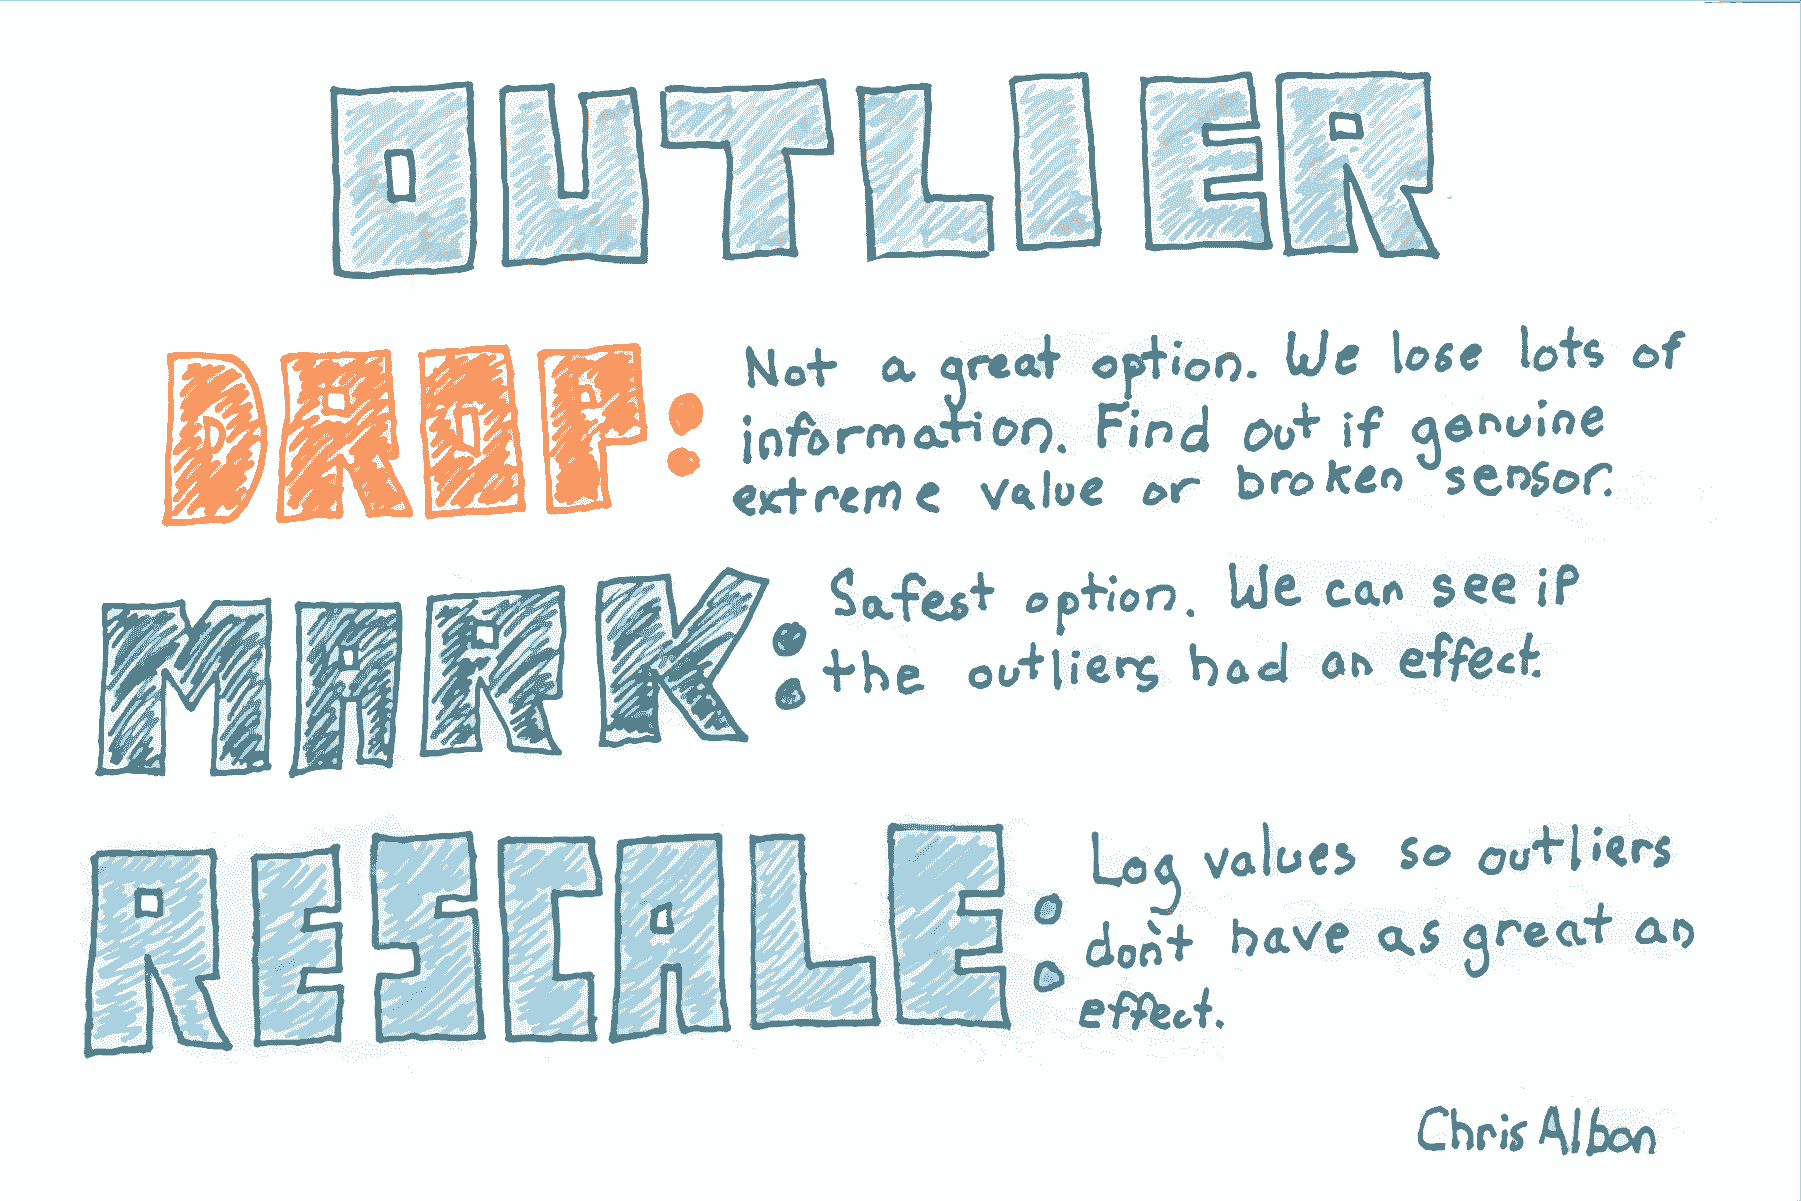 OUTLIER
DROP: Not a great option. We lose lots of
information. Find out if genuine
extreme value or broken sensor.
MARK: Safest option. We can see if
the outliers had an effect.
RESCALE: Log values so outliers
don't have as great an
effect.
Chris Albon